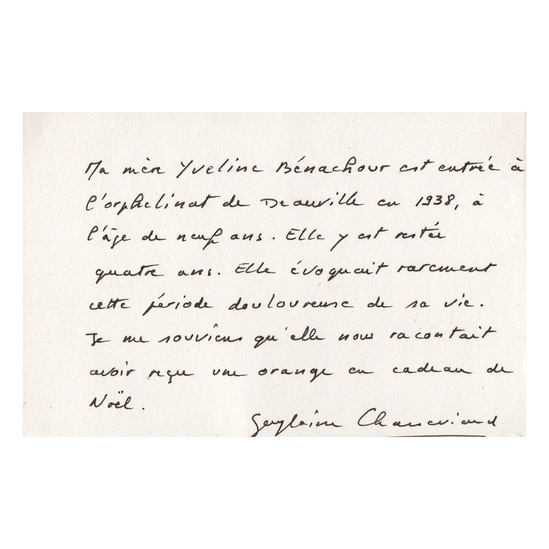 Ma mère Yveline Bénachour est entrée à
l'orphelinat de Deauville en 1938, à
l'âge de neuf ans. Elle y est restée
quatre ans. Elle évoquait rarement
cette période douloureuse de sa vie.
Je me souviens qu'elle nous racontait
avoir reçu une orange en cadeau de
Noël.